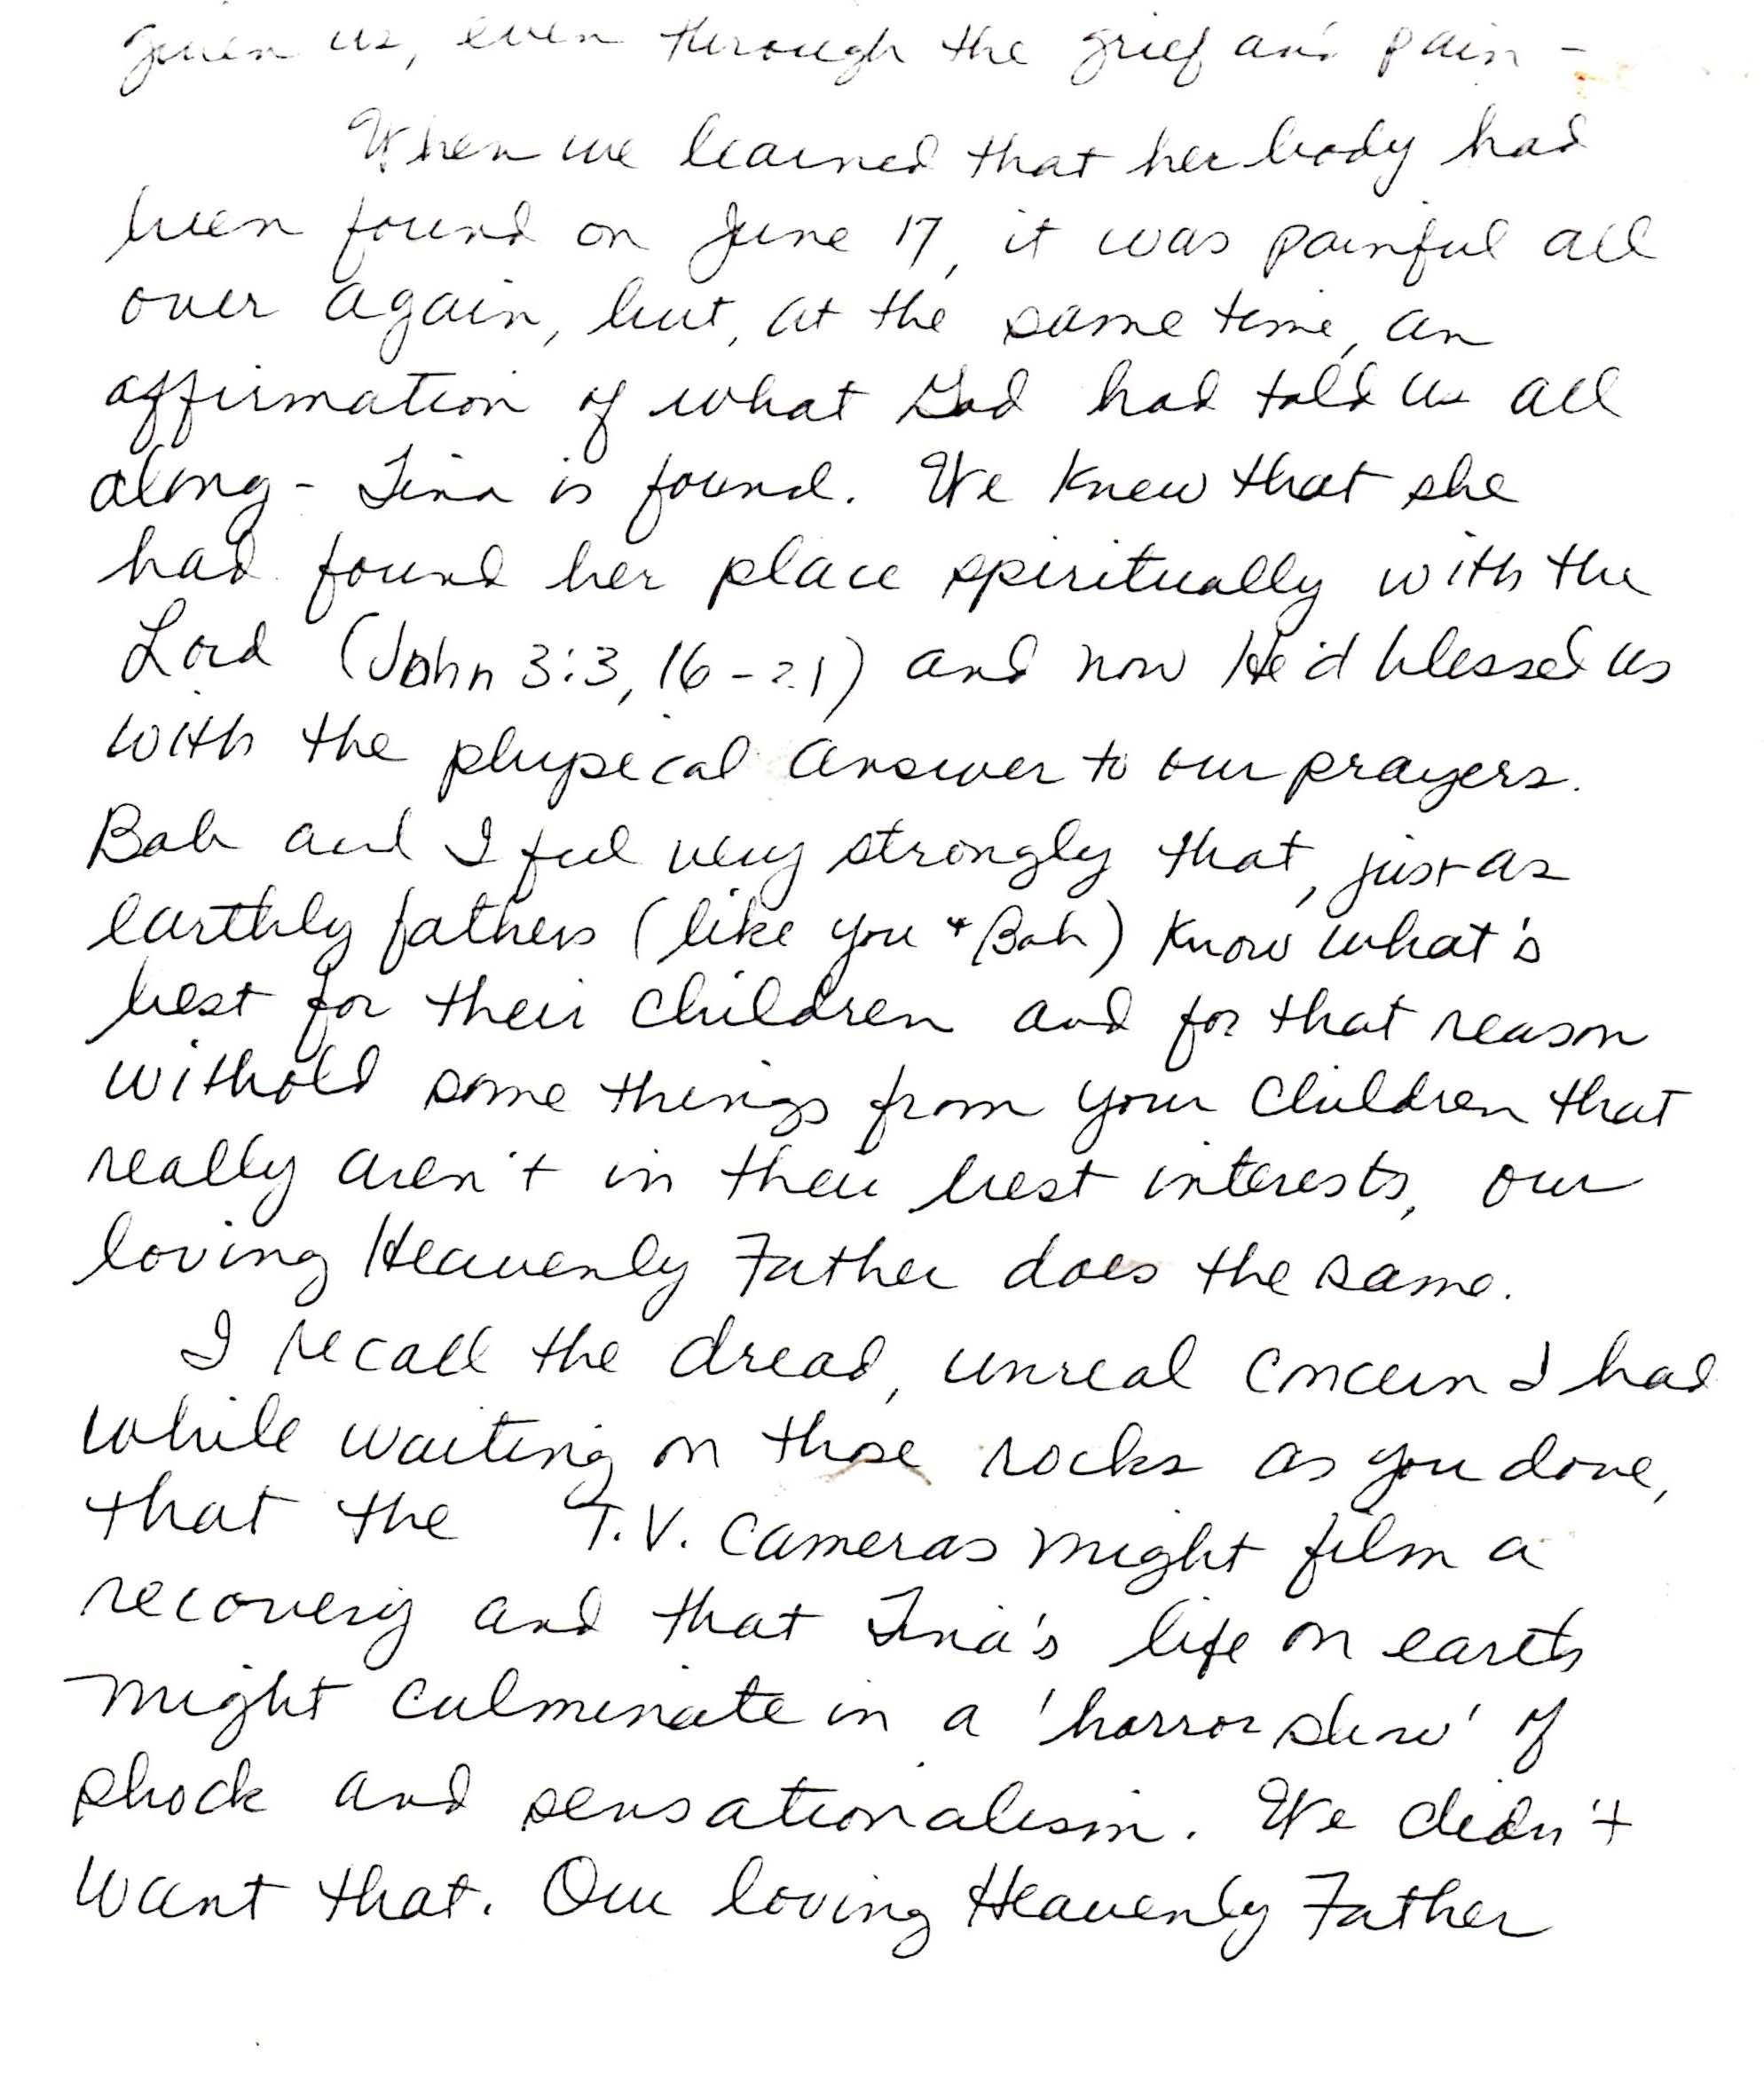 given us, even through the grief and pain -
When we learned that her body had
been found on June 17, it was painful all
over again, but, at the same time, an
affirmation of what God had told us all
along - Tina is found. We knew that she
had found her place spiritually with the
Lord (John 3:3, 16-21) and now He'd blessed us
with the physical answer to our prayers.
Bob and I feel very strongly that, just as
earthly fathers (like you + Bob) know what's
best for their children and for that reason
withold some things from your children that
really aren't in their best interests, our
loving Heavenly Father does the same.
I recall the dread, unreal concern I had
while waiting on those rocks as you dove,
that the T.V. cameras might film a
recovery and that Tina's life on earth
might culminate in a 'horror show' of
shock and sensationalism. We didn't
want that. Our loving Heavenly Father